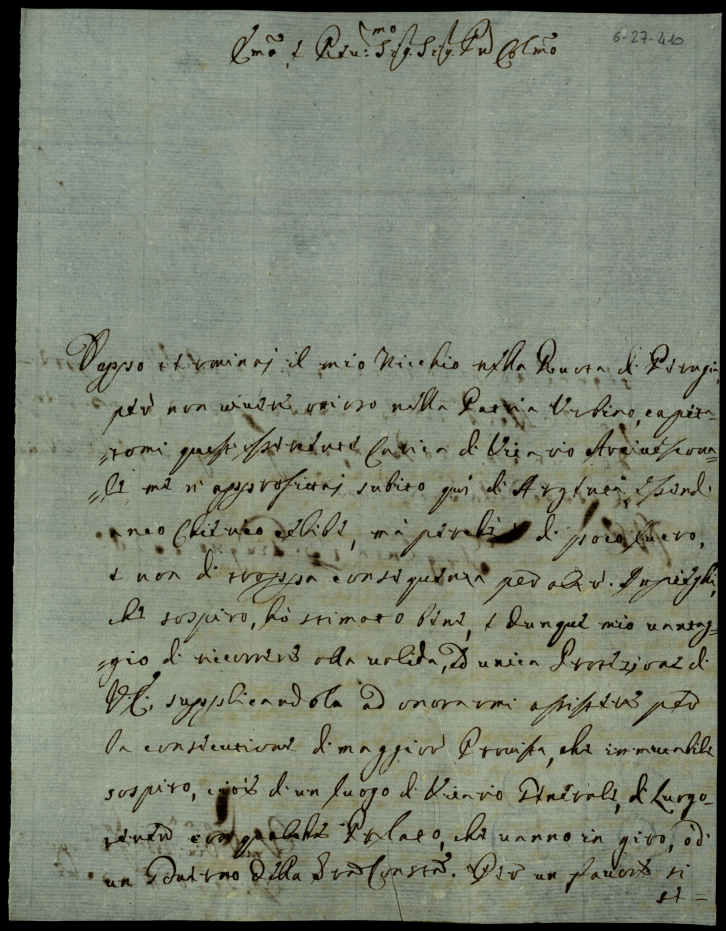 6-27-410
Em̃o, e Rev:mo Sig. Sig. Pñ Colmõ
Doppo terminai il mio Uficio nella Ruota di Perugia
per non viver ozioso nella Patria Urbino, capita-
tomi Carica di Vicario Arcivescova-
le me n'approfittai subito qui di
anco Chierico celibe, mà perche è di poco lucro,
e non di troppa consequenza per altri Impieghi,
che sospiro, hò stimato bene, e dunque mio vantag-
gio di ricorrere alla valida, ed unica Protezione di
V.E. supplicandola ad onorarmi assistere per
la consecuzione di maggior Provista, che
sospiro, cioè di un luogo di Vicario Generale, di Luogo-
tenente con qualche Prelato, che vanno in giro, ò di
un Governo della Per un favore si